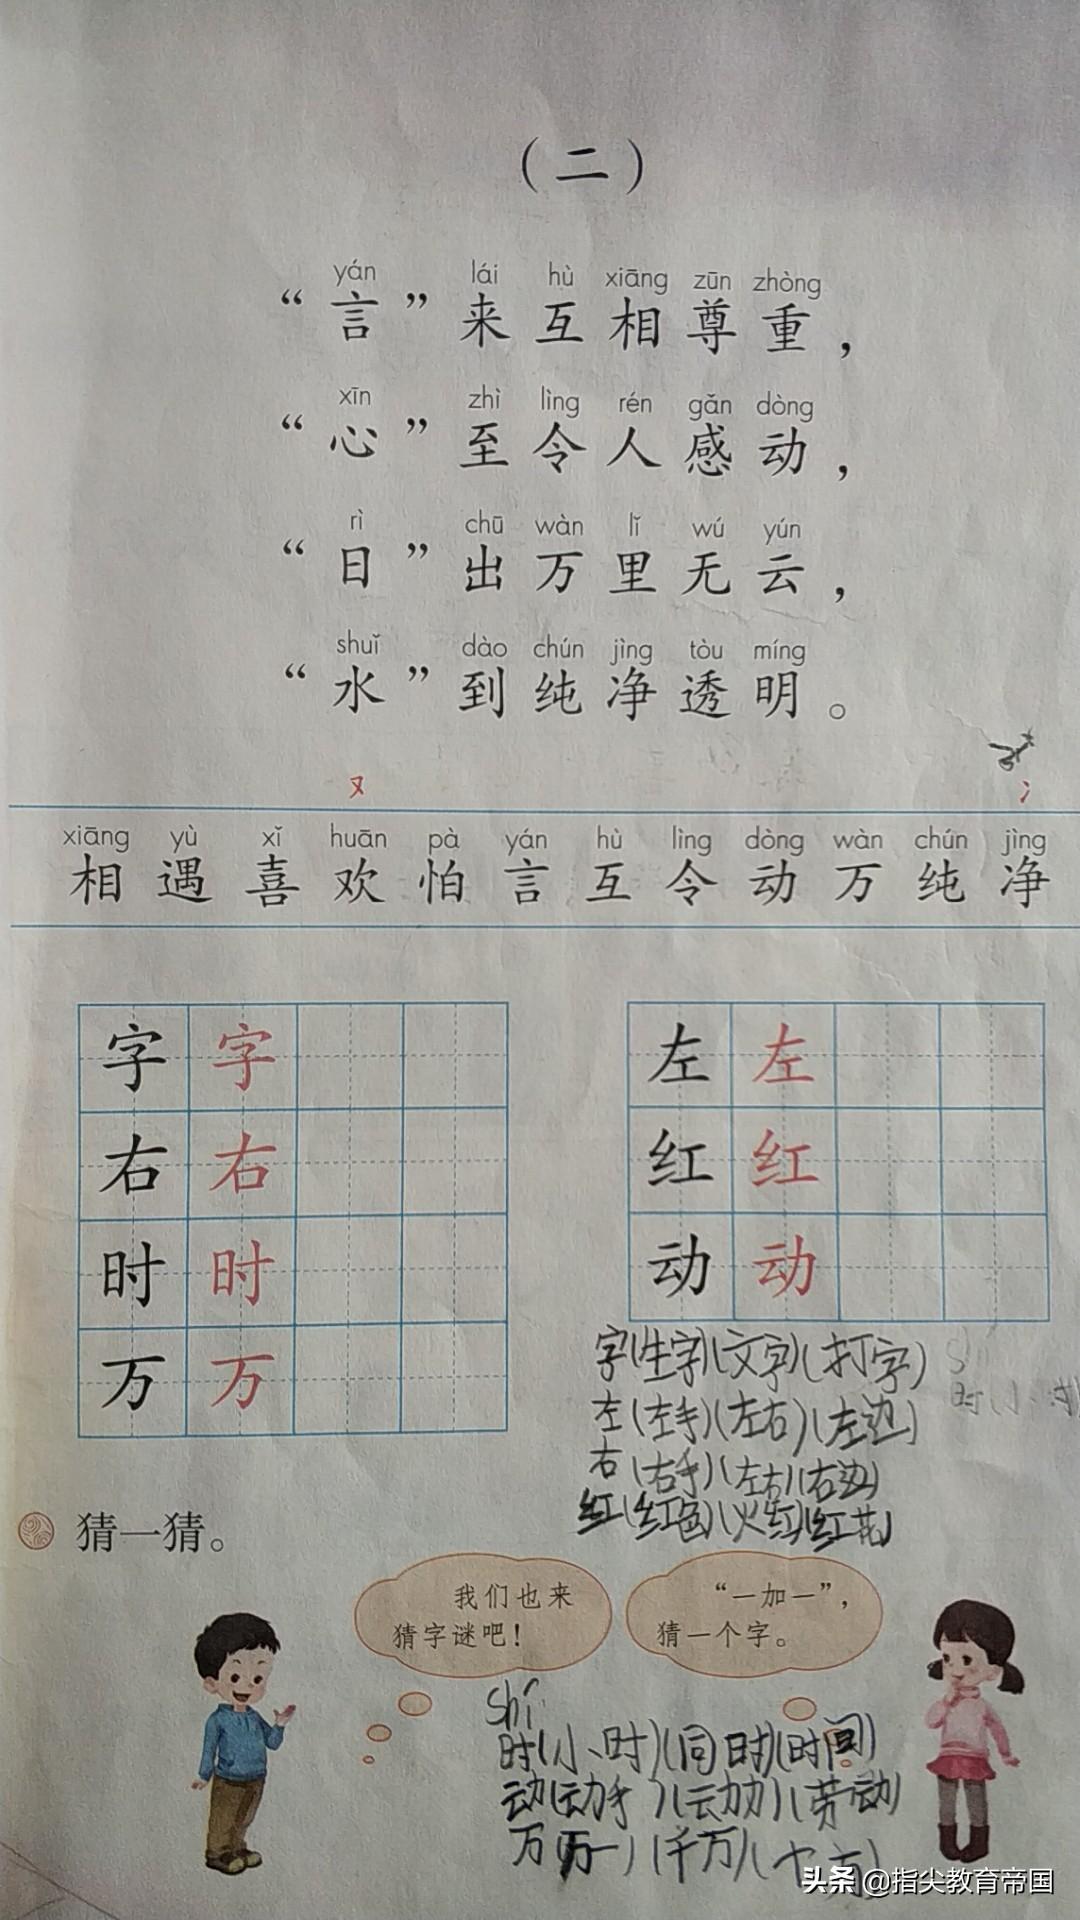 （二）
yán lái hù xiāng zūn zhòng
“言”来互相尊重，
xīn zhì lìng rén gǎn dòng
“心”至令人感动，
rì chū wàn lǐ wú yún
“日”出万里无云，
shuǐ dào chún jìng tòu míng
“水”到纯净透明。
又 冫
xiāng yù xǐ huān pà yán hù lìng dòng wàn chún jìng
相遇喜欢怕言互令动万纯净
字 字
右 右
时 时
万 万
左 左
红 红
动 动
字(生字)(文字)(打字)
左(左手)(左右)(左边)
右(右手)(左右)(右边)
红(红色)(火红)(红花)
猜一猜。
我们也来
猜字谜吧！
“一加一”，
猜一个字。
shí
时(小时)(同时)(时间)
动(动手)(动力)(劳动)
万(万一)(千万)(十万)
头条 @指尖教育帝国